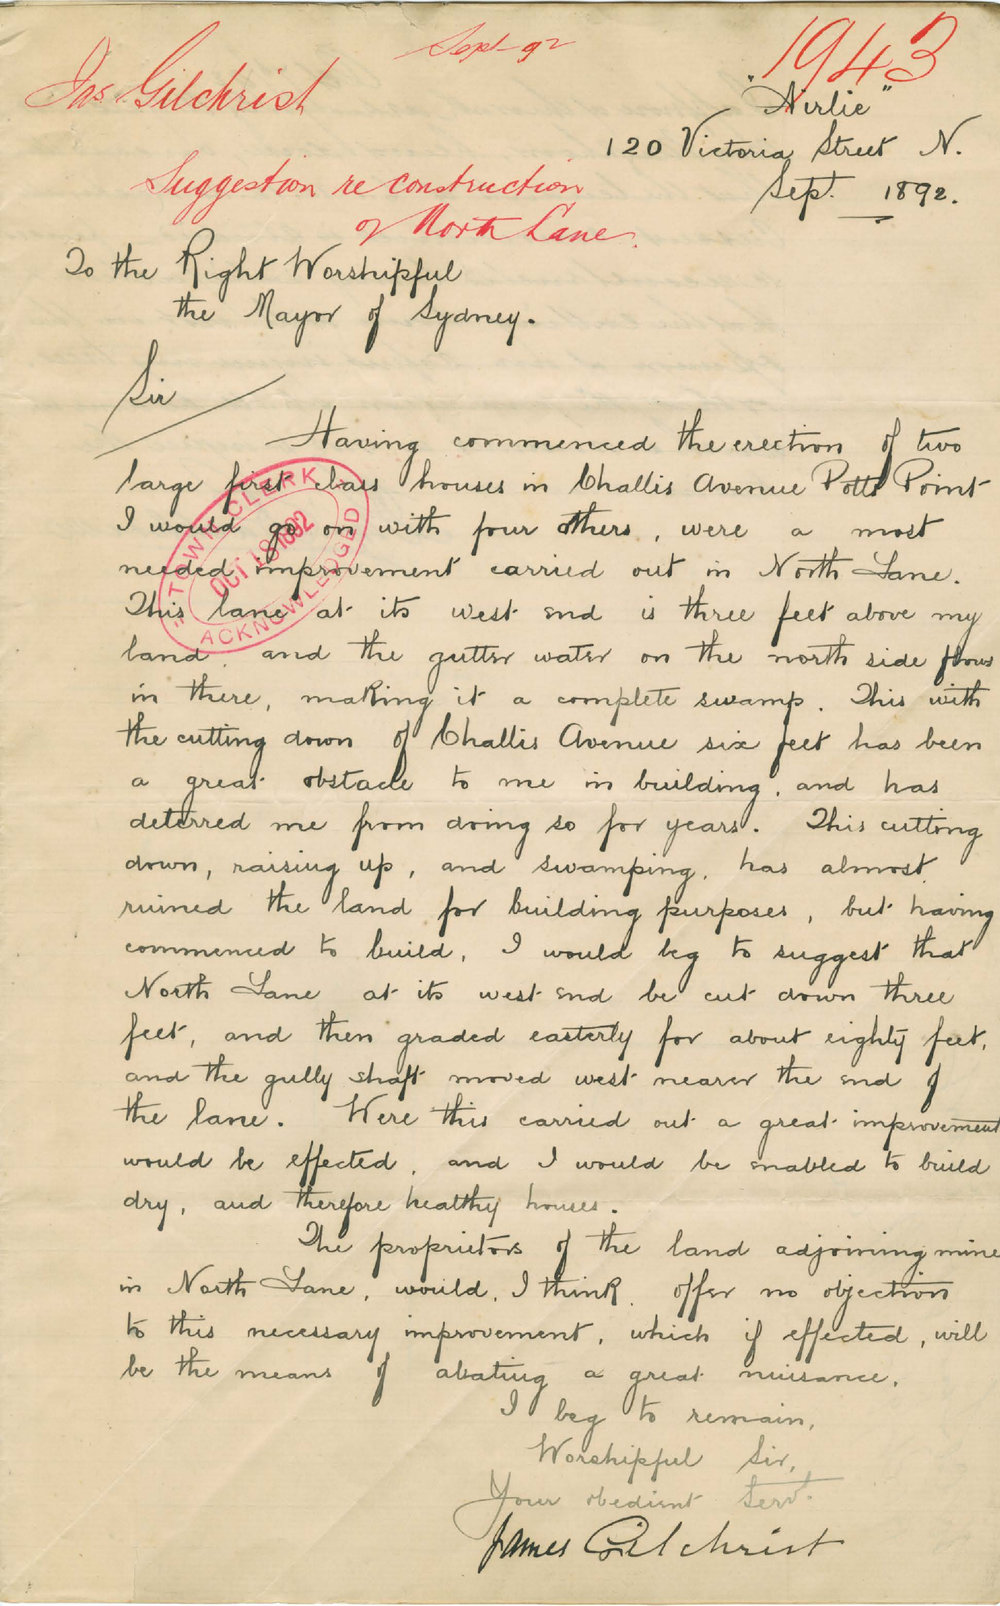 Sept 92
1943
Jas Gilchrist
"Airlie"
120 Victoria Street N.
Suggestion re construction
of North Lane.
Sept. 1892.
To the Right Worshipful
the Mayor of Sydney.
Sir
Having commenced the erection of two
large first class houses in Challis Avenue Potts Point
I would go on with four others, were a most
needed improvement carried out in North Lane.
This lane at its west end is three feet above my
land, and the gutter water on the north side flows
in there, making it a complete swamp. This with
the cutting down of Challis Avenue six feet has been
a great obstacle to me in building, and has
deterred me from doing so for years. This cutting
down, raising up, and swamping, has almost
ruined the land for building purposes, but having
commenced to build, I would beg to suggest that
North Lane at its west end be cut down three
feet, and then graded easterly for about eighty feet,
and the gully shaft moved west nearer the end of
the lane. Were this carried out a great improvement
would be effected, and I would be enabled to build
dry, and therefore healthy houses.
The proprietors of the land adjoining mine
in North Lane, would, I think, offer no objection
to this necessary improvement, which if effected, will
be the means of abating a great nuisance.
I beg to remain,
Worshipful Sir,
Your obedient Servt.
James Gilchrist
TOWN CLERK
OCT 18 1892
ACKNOWLEDGED